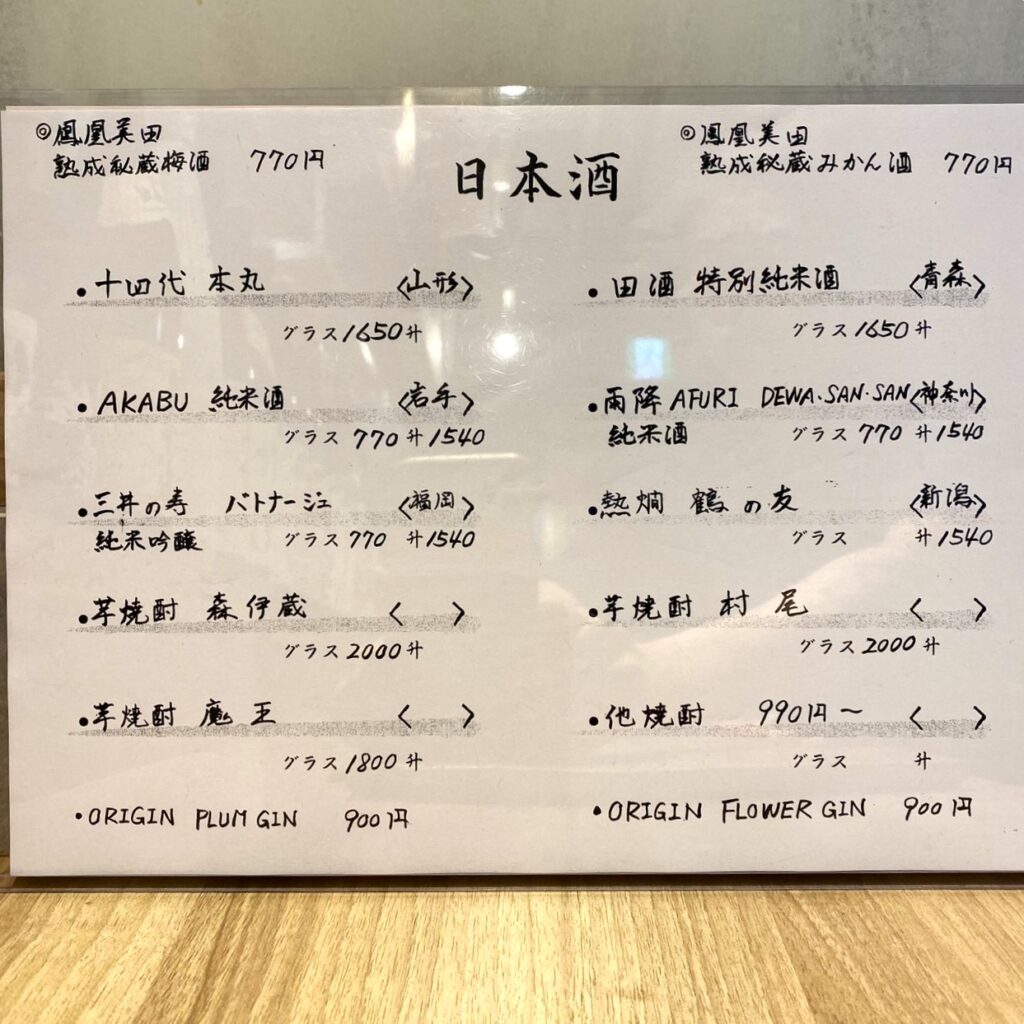 ◎鳳凰美田
熟成秘蔵梅酒 770円
◎鳳凰美田
熟成秘蔵みかん酒 770円
日本酒
・十四代 本丸 〈山形〉
グラス1650 升
・AKABU 純米酒 〈岩手〉
グラス 770 升1540
・三井の寿 バトナージュ 〈福岡〉
純米吟醸 グラス 770 升1540
・芋焼酎 森伊蔵 〈 〉
グラス2000 升
・芋焼酎 魔王 〈 〉
グラス1800 升
・ORIGIN PLUM GIN 900円
・田酒 特別純米酒 〈青森〉
グラス1650 升
・雨降 AFURI DEWA・SAN・SAN〈神奈川〉
純米酒 グラス 770 升1540
・熱燗 鶴の友 〈新潟〉
グラス 升1540
・芋焼酎 村尾 〈 〉
グラス2000 升
・他焼酎 990円〜 〈 〉
グラス 升
・ORIGIN FLOWER GIN 900円